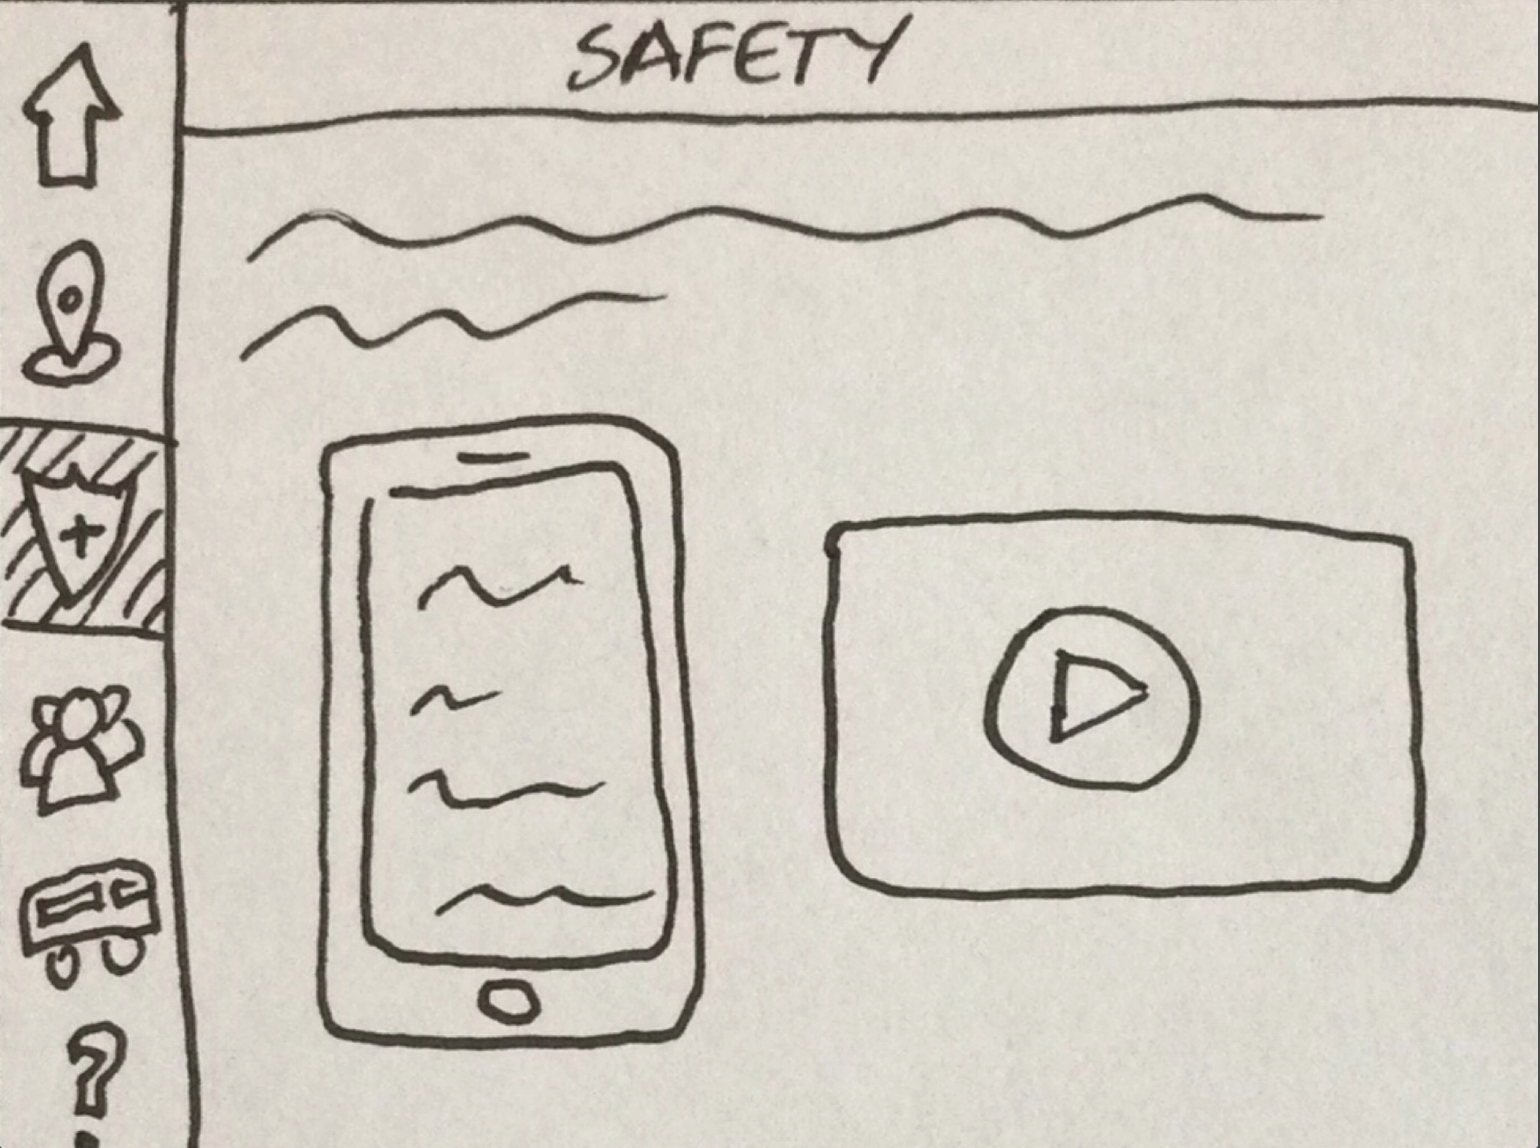 SAFETY
?